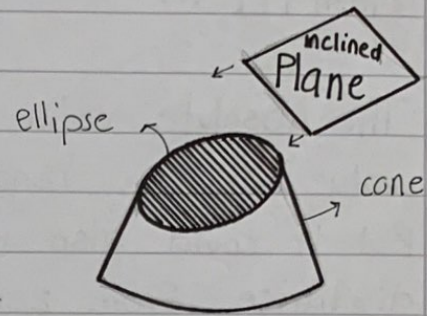 inclined
Plane
ellipse
cone